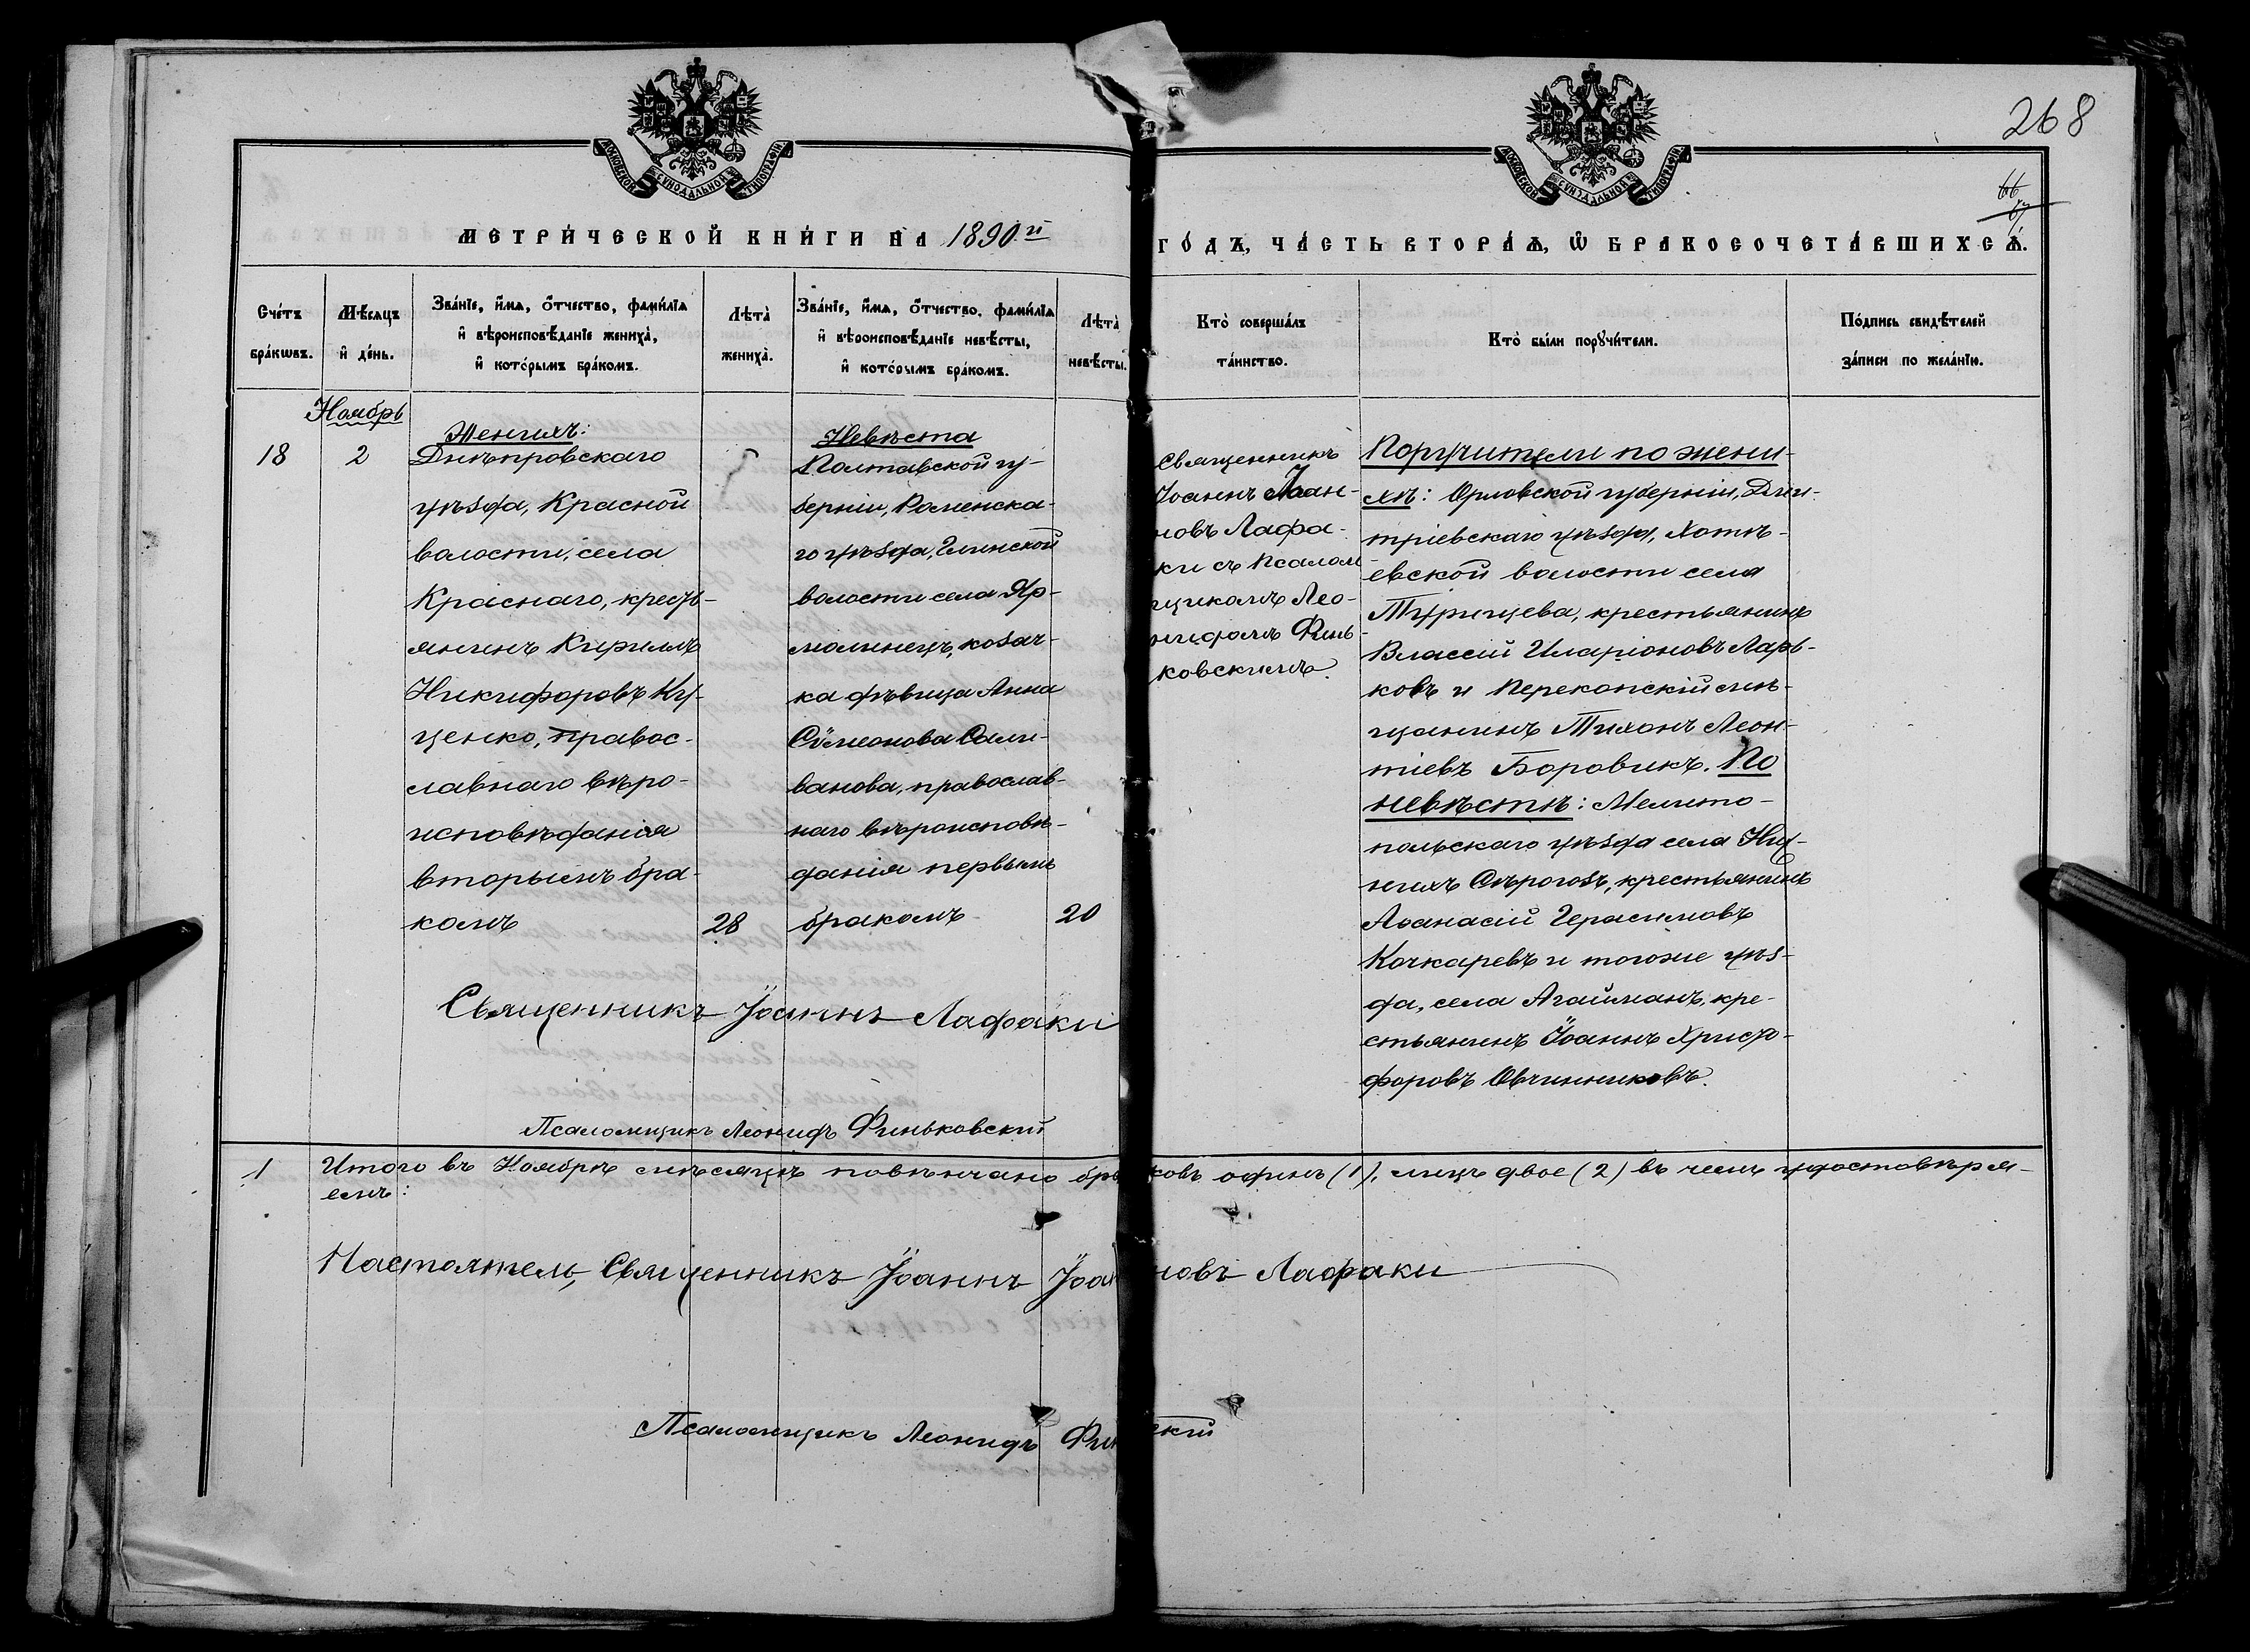 268
66
67
МОСКОВСКОЙ СѴНОДАЛЬНОЙ ТИПОГРАФІИ
МОСКОВСКОЙ СѴНОДАЛЬНОЙ ТИПОГРАФІИ
МЕТРИ́ЧЕСКОЙ КНИ́ГИ НА 1890.й ГО́ДЪ, ЧА́СТЬ ВТОРА́Ѧ, Ѡ БРАКОСОЧЕТА́ВШИХСѦ.
Сче́тъ
бра́кѡвъ.
Мѣ́сѧцъ
и҆ де́нь.
Зва́нїе, и҆́мѧ, о҆́тчество, фами́лїѧ
и҆ вѣроисповѣ́данїе жениха̀,
и҆ кото́рымъ бра́комъ.
Лѣта̀
жениха̀.
Зва́нїе, и҆́мѧ, о҆́тчество, фами́лїѧ
и҆ вѣроисповѣ́данїе невѣ́сты,
и҆ кото́рымъ бра́комъ.
Лѣта̀
невѣ́сты.
Кто̀ соверша́лъ
та́инство.
Кто̀ бы́ли порꙋчи́тели.
По́дпись свидѣ́телей
за́писи по жела́нїю.
Ноябрь
18
2
Женихъ:
Днѣпровскаго
уѣзда, Красной
волости, села
Краснаго, кресть-
янинъ Кириллъ
Никифоровъ Ку-
ценко, правос-
лавнаго вѣро-
исповѣданія
вторымъ бра-
комъ
28
Невѣста
Полтавской гу-
берніи, Роменска-
го уѣзда, Глинской
волости села Яр-
молинецъ, козач-
ка дѣвица Анна
Сѵмеонова Сели-
ванова, православ-
наго вѣроисповѣ-
данія первымъ
бракомъ
20
Священникъ
Іоаннъ Іоан-
новъ Лафа-
ки съ псалом
щикомъ Лео-
нидомъ Финь-
ковскимъ.
Поручители по жени-
хѣ: Орловской губерніи, Дми-
тріевскаго уѣзда, Хотѣ-
евской волости села
Турищева, крестьянинъ
Власій Иларіоновъ Ларь-
ковъ и Перекопскій мѣ-
щанинъ Тихонъ Леон-
тіевъ Боровикъ. По
невѣстѣ: Мелито-
польскаго уѣзда села Ниж-
нихъ Сѣрогозъ, крестьянинъ
Аѳанасій Герасимовъ
Кочкаревъ и тогоже уѣз-
да, села Агайманъ, кре-
стьянинъ Іоаннъ Христо-
форовъ Овчинниковъ.
Священникъ Іоаннъ Лафаки
Псаломщикъ Леонидъ Финьковскій
1
Итого въ Ноябрѣ мѣсяцѣ повѣнчано браковъ одинъ (1), лицъ двое (2) въ чемъ удостовѣря-
емъ:
Настоятель, Священникъ Іоаннъ Іоанновъ Лафаки
Псаломщикъ Леонидъ